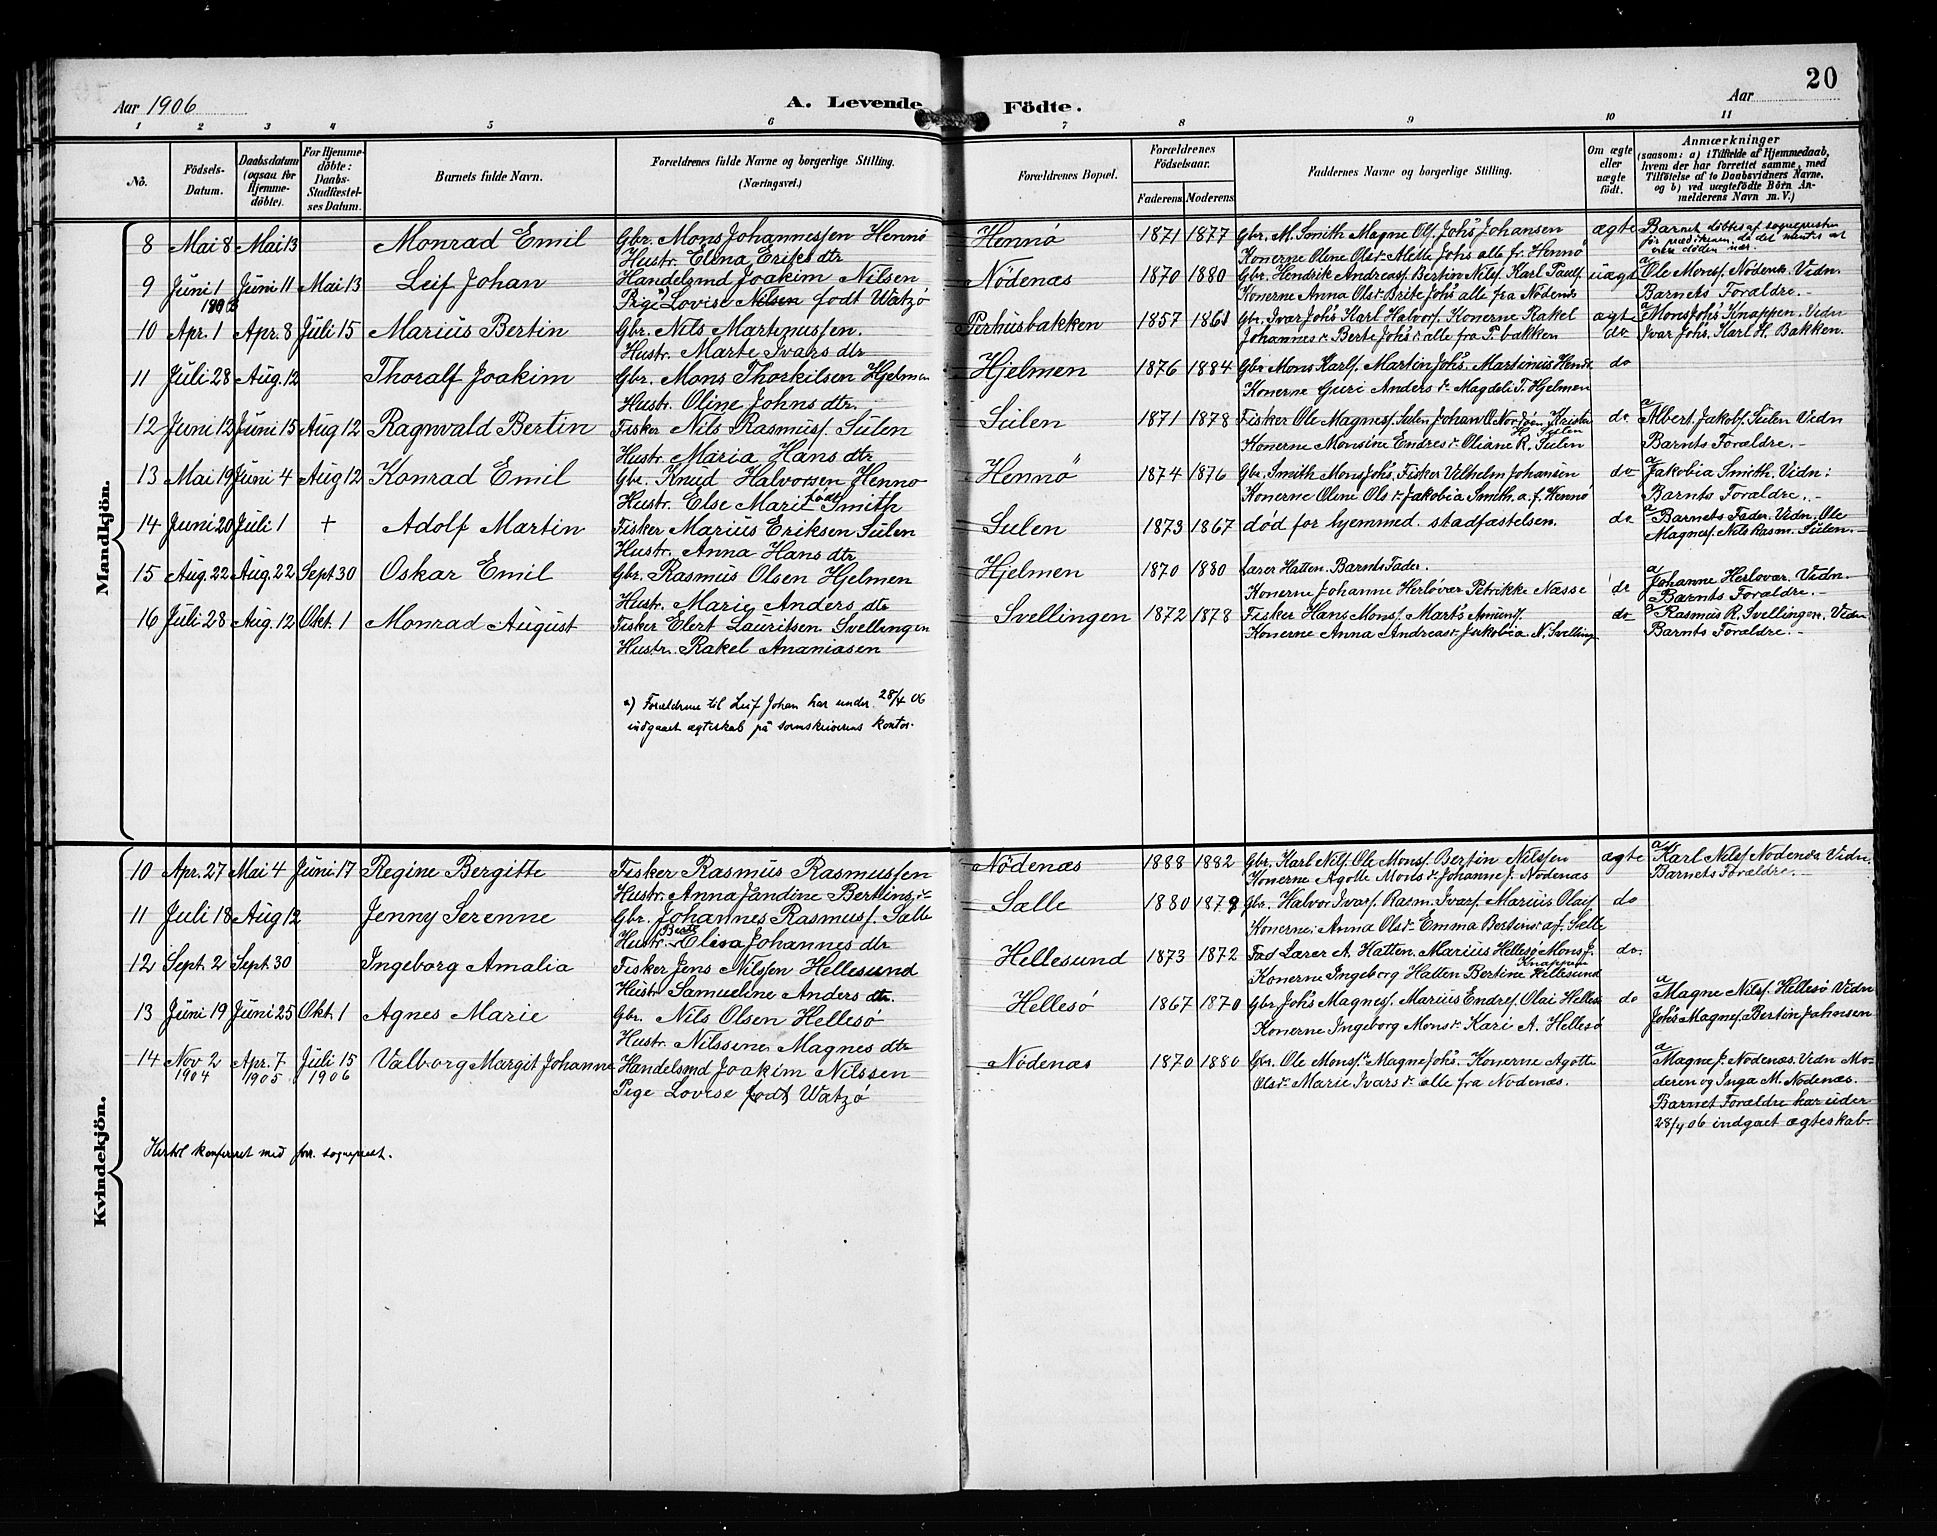 Aar 1906
A. Levende Födte.
Aar
20
1 2 3 4 5 6 7 8 9 10 11
No.
Födsels-Datum.
Daabsdatum (ogsaa for Hjemme-döbte).
For Hjemme-döbte: Daabs-Stadfæstel-ses Datum.
Barnets fulde Navn.
Forældrenes fulde Navne og borgerlige Stilling. (Næringsvei.)
Forældrenes Bopæl.
Forældrenes Födselsaar.
Faderens. Moderens
Faddernes Navne og borgerlig Stilling.
Om ægte eller uægte födt.
Anmærkninger
(saasom: a) i Tilfælde af Hjemmedaab, hvem der har forrettet samme, med Tilföielse af to Daabsvidners Navne, og b) ved uægtefödte Börn An-melderens Navn m. V.)
Mandkjön.
8 Mai 8 Mai 13 Monrad Emil Gbr. Mons Johannessen Hennö Hennö 1871 1877 Gbr. M. Smith Magne Ols. Johs Johansen ægte Barnet döbtes af sognepresten
Hustr. Elina Eriks dtr Konerne Olene Olsdr Alette Johs alle fr. Hennö for prædikenen, da det mentes at være döden nær.
9 Juni 1 Juni 11 Mai 13 Leif Johan Handelsmd Joakim Nilsen Nödenæs 1870 1880 Gbr. Hendrik Andreass. Bertin Nilss. Karl Paulss uægt a Ole Monss. Nödenæs. Vidn.
Pige a) Lovise Nilsen født Watzö Konerne Anna Olsdr Brite Johs alle fra Nödenæs Barnets Forældre.-
10 Apr. 1 Apr. 8 Juli 15 Marius Bertin Gbr. Nils Martinussen. Perhusbakken 1857 1861 Gbr. Ivar Johs Karl Halvors. Konerne Rakel ægt a Mons Johs Knappen. Vidn
Hustr. Marte Ivars dtr Johannesdr Berte Johs dr alle fra P. bakken do Ivar Johs. Karl H. Bakken.
11 Juli 28 Aug. 12 Thoralf Joakim Gbr. Mons Thorkilsen Hjelmen Hjelmen 1876 1884 Gbr Mons Karls. Martin Johs. Martinus Hends. do
Hustr. Oline Johns dtr. Konerne Guri Anders dr Magdeli T. Hjelmen
12 Juni 12 Juni 15 Aug 12 Ragnvald Bertin Fisker Nils Rasmuss. Sulen Sulen 1871 1878 Fisker Ole Magness. Sulen Johan O. do a Albert Jakobs. Sulen Vidn
Hustr. Maria Hans dtr Konerne Monsine Endresdr Oliane R. Sulen Barnets Forældre.-
13 Mai 19 Juni 4 Aug 12 Konrad Emil Gbr. Knud Halvorsen Henno Hennö 1874 1876 Gbr. Smith Mons Johs. Fisker Vilhelm Johansen do a Jakobia Smith. Vidn:
Hustr. Else Marie født Smith Konerne Olene Olsdr Jakobia Smith. a. f. Hennö Barnts Forældre.-
14 Juni 20 Juli 1 + Adolf Martin Fisker Marius Eriksen Sulen Sulen 1873 1867 død for hjemmed. stadfæstelsen. do a Barnets Fader. Vidn. Ole
Hustr. Anna Hans dtr Magness. Nils Rasm. Sulen.-
15 Aug. 22 Aug. 22 Sept 30 Oskar Emil Gbr. Rasmus Olsen Hjelmen Hjelmen 1870 1880 Lærer Hatten. Barnts Fader. a Johanne Herlovær. Vidn.
Hustr. Marie Anders dtr Konerne Johanne Herlövær Petrikke Næsse do Barnts Forældre.-
16 Juli 28 Aug. 12 Okt. 1 Monrad August Fisker Elert Lauritsen Svellingen Svellingen 1872 1878 Fisker Hans Monss. Marts Amunds. do a Rasmus R. Svellingen. Vidn
Hustr. Rakel Ananiasen Konerne Anna Andreasdr Jakobia N. Svelling Barnts Forældre.-
a) Forældrene til Leif Johan har under 28/4 06
indgaaet ægteskab på sorenskriverens kontor.
Kvindekjön.
10 Apr. 27 Mai 4 Juni 17 Regine Bergitte Fisker Rasmus Rasmussen Nödenæs 1888 1882 Gbr. Karl Nils. Ole Monss. Bertin Nilssen ægte a Karl Nilss. Nodenæs Vidn.
Hustr. Anna Jandine Bertins dr Konerne Agotte Mons dr Johanne J. Nödenæs Barnets Forældre.-
11 Juli 18 Aug 12 Jenny Serenne Gbr. Johannes Rasmuss. Sælle Sælle 1880 1879 Gbr. Halvor Ivars. Rasm. Ivars. Marius Olay do
Hustr. Berte Elisa Johannes dtr Konerne: Anna Olsdr Emma Bertinsdr af. Sælle
12 Sept. 2 Sept. 30 Ingeborg Amalia Fisker Jens Nilssen Hellesund Hellesund 1873 1872 Fad Lærer A. Hatten. Marius Hellesö Mons J. Knappen do.
Hustr Samueline Anders dtr. Konerne Ingeborg Hatten Bertine Hellesund
13 Juni 19 Juni 25 Okt. 1 Agnes Marie Gbr. Nils Olsen Hellesö Hellesö 1867 1870 Gbr. Johs Magness. Marius Endres. Olai Hellesö do a Magne Nilss. Hellesö Vidn
Hustr. Nilssine Magnes dtr Konerne Ingeborg Monsdr. Kari A. Hellesö Johs Magness. Bertin Jahnsen
14 Nov. 2 1904 Apr. 7 1905 Juli 15 1906 Valborg Margit Johanne Handelsmd Joakim Nilssen Nödenæs 1870 1880 Gbr. Ole Monss. Magne Johs. Konerne Agotte a Magne J. Nodenæs. Vidn Mo-
Pige Lovise født Watzö Olsdr Marie Ivarsdr alle fra Nodenæs. deren og Inga M. Nodenæs.
Barnet Forældre har under
28/4 06 indgaet ægteskab-
Hertil konfereret med forr. sogneprest.